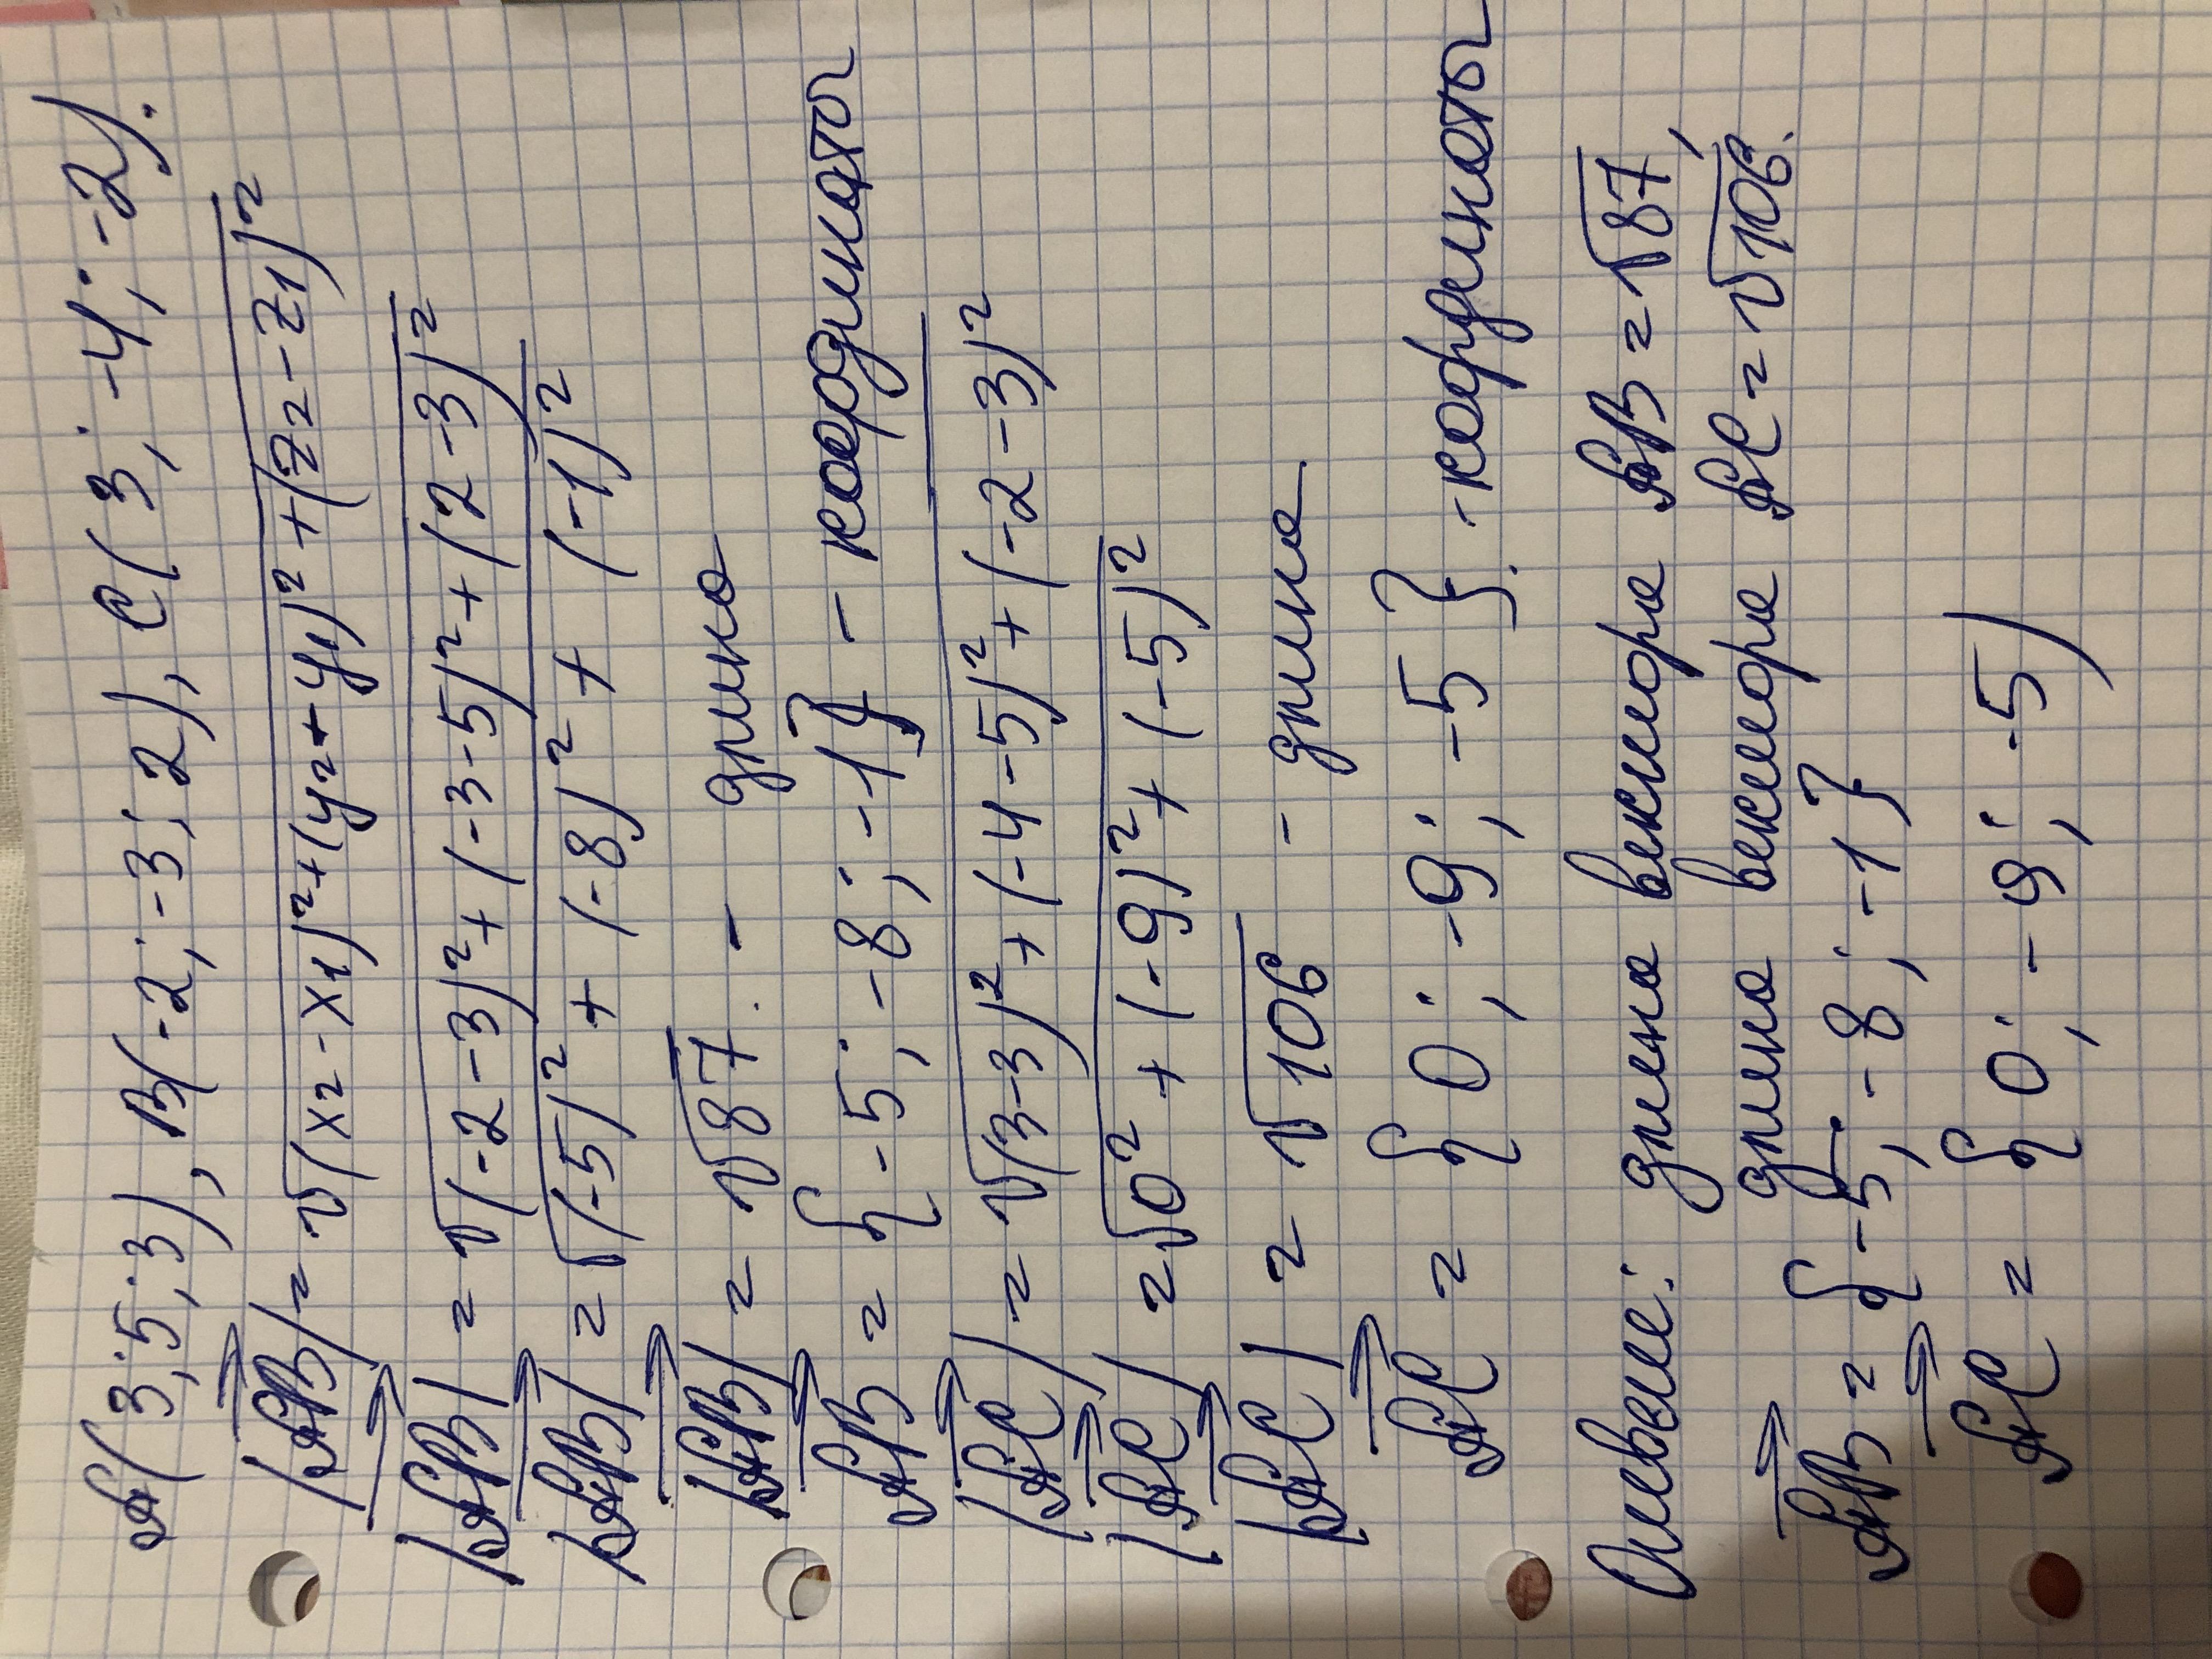 A(3;5;3), B(-2;-3;2), C(3;-4;-2).
|AB| = √(x₂-x₁)²+(y₂-y₁)²+(z₂-z₁)²
|AB| = √(-2-3)²+(-3-5)²+(2-3)²
|AB| = √(-5)² + (-8)² + (-1)²
|AB| = √87. - длина
AB = {-5; -8; -1} - координаты
|AC| = √(3-3)²+(-4-5)²+(-2-3)²
|AC| = √0² + (-9)² + (-5)²
|AC| = √106 - длина
AC = {0; -9; -5}. - координаты
Ответ: длина вектора AB = √87,
длина вектора AC = √106.
AB = {-5; -8; -1}
AC = {0; -9; -5)